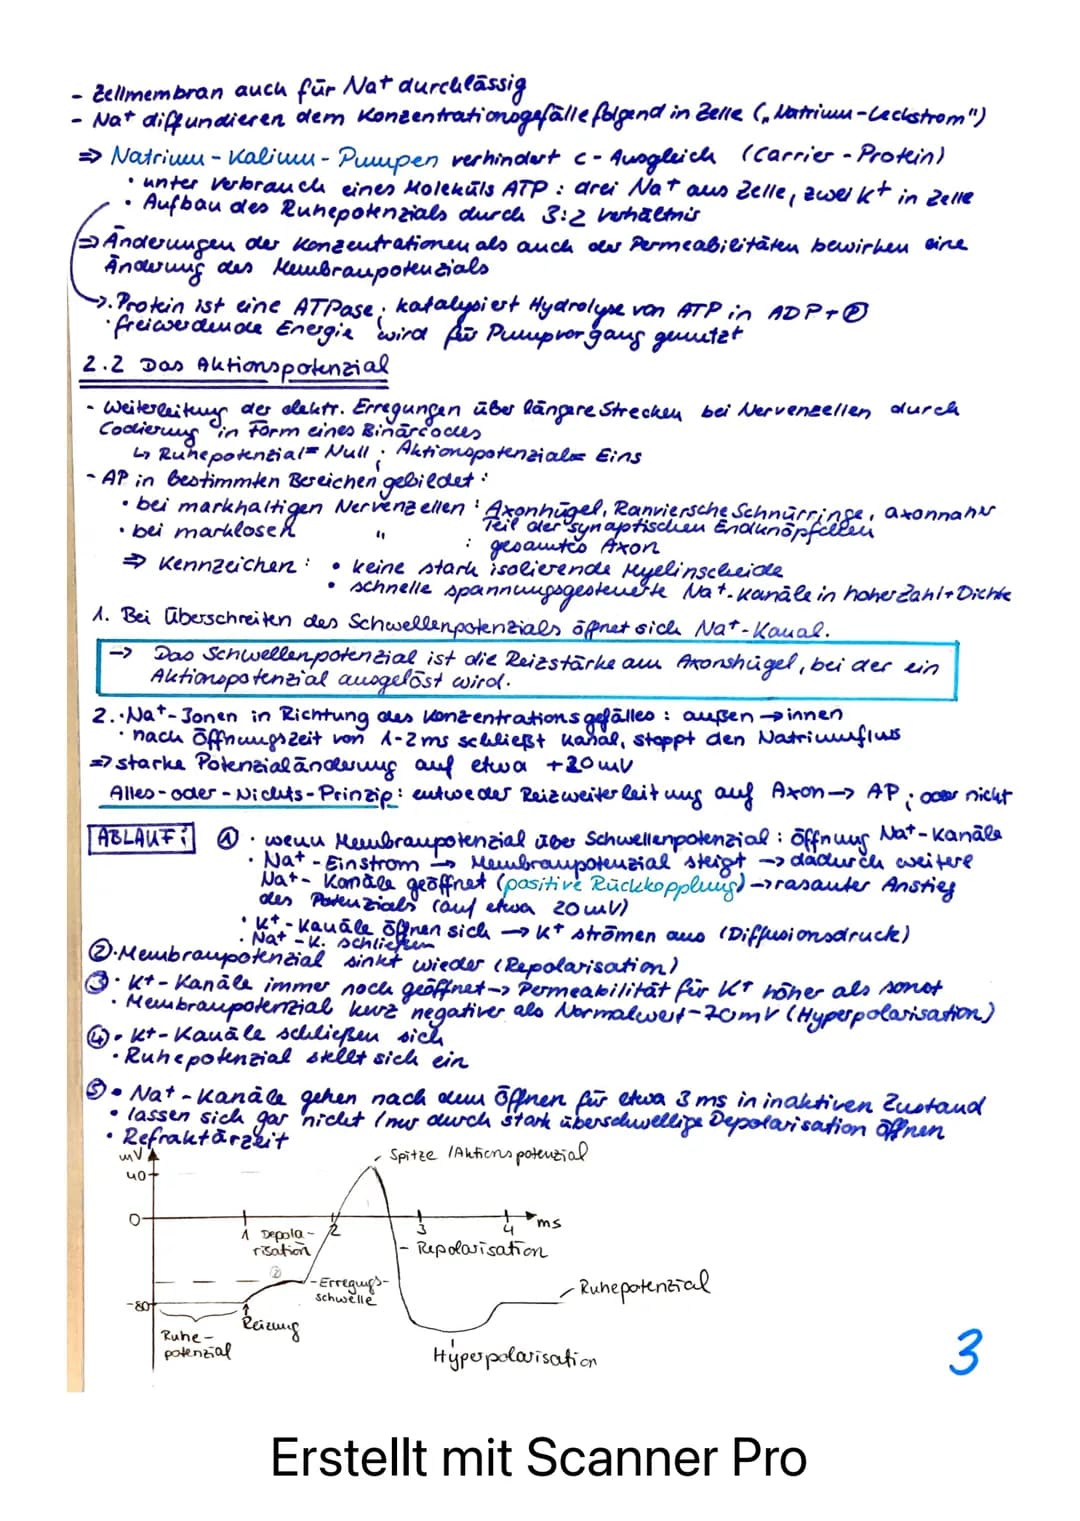 - Zellmembran auch für Na+ durchlässig
- Na+ diffundieren dem Konzentrationsgefälle folgend in Zelle („Natrium-Leckstrom")
=> Natrium-Kalium-Pumpen verhindert c-Ausgleich (Carrier-Protein)
• unter Verbrauch eines Moleküls ATP: drei Na+ aus Zelle, zwei K+ in Zelle
• Aufbau des Ruhepotenzials durch 3:2 Verhältnis
=> Änderungen der Konzentrationen als auch der Permeabilitäten bewirken eine
Änderung des Membranpotenzials
→ • Protein ist eine ATPase: katalysiert Hydrolyse von ATP in ADP + Ⓟ
• freiwerdende Energie wird für Pumpvorgang genutzt
2.2 Das Aktionspotenzial
- Weiterleitung der elektr. Erregungen über längere Strecken bei Nervenzellen durch
Codierung in Form eines Binärcodes
↳ Ruhepotenzial = Null ; Aktionspotenzial = Eins
- AP in bestimmten Bereichen gebildet:
• bei markhaltigen Nervenzellen : Axonhügel, Ranviersche Schnürringe, axonnaher
Teil der synaptischen Endknöpfchen
• bei marklosen " : gesamtes Axon
=> Kennzeichen: • keine stark isolierende Myelinscheide
• schnelle spannungsgesteuerte Na+-Kanäle in hoher Zahl + Dichte
1. Bei Überschreiten des Schwellenpotenzials öffnet sich Na+-Kanal.
→ Das Schwellenpotenzial ist die Reizstärke am Axonshügel, bei der ein
Aktionspotenzial ausgelöst wird.
2. • Na+-Ionen in Richtung des Konzentrationsgefälles: außen → innen
• nach Öffnungszeit von 1-2 ms schließt Kanal, stoppt den Natriumfluss
=> starke Potenzialänderung auf etwa +20 mV
Alles-oder-Nichts-Prinzip: entweder Reizweiterleitung auf Axon → AP ; oder nicht
ABLAUF: ① • wenn Membranpotenzial über Schwellenpotenzial: Öffnung Na+-Kanäle
• Na+-Einstrom → Membranpotenzial steigt → dadurch weitere
Na+-Kanäle geöffnet (positive Rückkopplung) → rasanter Anstieg
des Potenzials (auf etwa 20 mV)
• K+-Kanäle öffnen sich → K+ strömen aus (Diffusionsdruck)
• Na+-K. schließen
② • Membranpotenzial sinkt wieder (Repolarisation)
③ • K+-Kanäle immer noch geöffnet → Permeabilität für K+ höher als sonst
• Membranpotenzial kurz negativer als Normalwert -70mV (Hyperpolarisation)
④ • K+-Kanäle schließen sich
• Ruhepotenzial stellt sich ein
⑤ • Na+-Kanäle gehen nach dem Öffnen für etwa 3 ms in inaktiven Zustand
• lassen sich gar nicht / nur durch stark überschwellige Depolarisation öffnen
• Refraktärzeit
mV
Spitze / Aktionspotenzial
40
0
1 2 3 4 ms
Depola-
risation
- Repolarisation
②
- Erregungs-
schwelle
Ruhepotenzial
-80
Reizung
Ruhe-
potenzial
Hyperpolarisation
3
Erstellt mit Scanner Pro